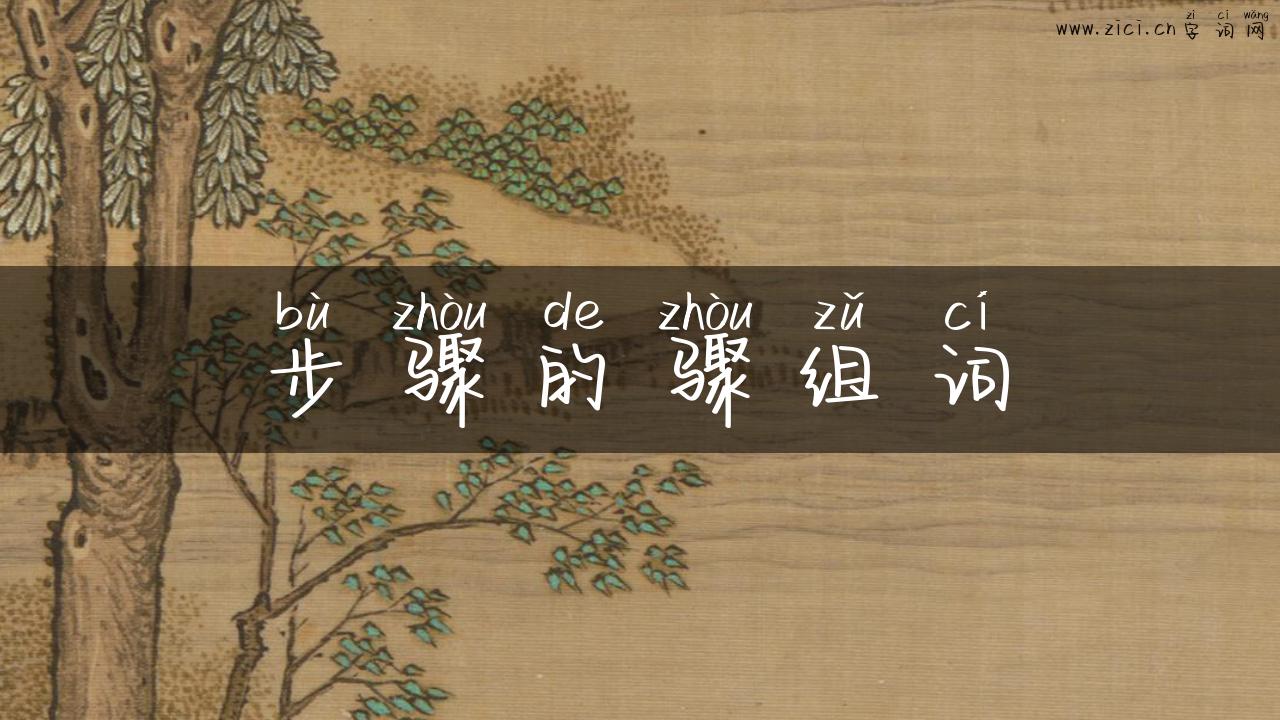 zì cí wǎng
www.zici.cn 字词网
bù zhòu de zhòu zǔ cí
步骤的骤组词